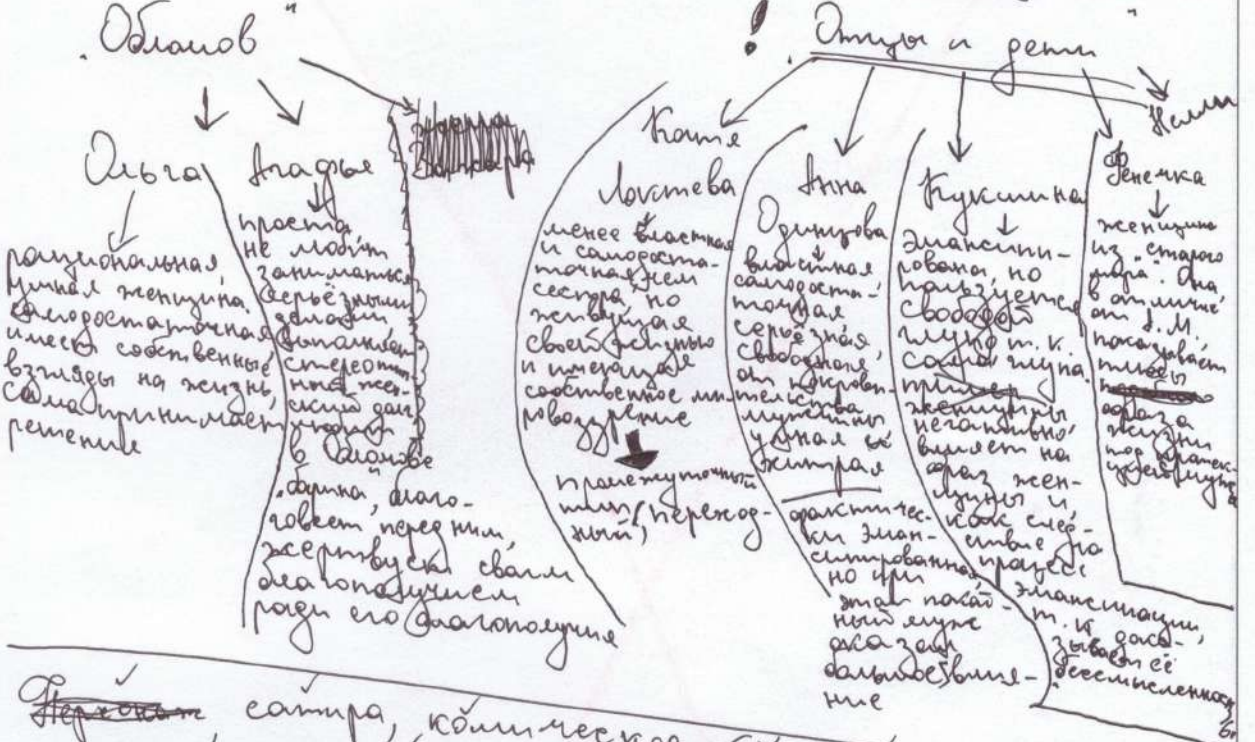 „Обломов"
Ольга
рациональная,
умная женщина,
самодостаточная,
имеет собственные
взгляды на жизнь,
сама принимает
решение
Агафья
проста,
не любит
заниматься
серьёзными
делами
выполняет
стереотип
ный жен-
ский долг
видит
в Обломове
„барина", благо-
говеет перед ним,
жертвуя своим
благополучием
ради его благополучия
! „Отцы и дети"
Катя
Локтева
менее властная
и самодоста-
точная, чем
сестра, но
живущая
своей жизнью
и имеющая
собственное ми-
ровоззрение
промежуточный
тип (переход-
ный)
Анна
Одинцова
властная
самодоста-
точная
серьёзная,
свободная
от покрови-
тельства
мужчины
умная и
хитрая
фактичес-
ки эман-
сипированна,
но при
этом покой-
ный муж
оказал
большое влия-
ние
Кукшина
эмансипи-
рована, но
пользуется
свободой
глупо т. к.
сама глупа.
пример
женщины
негативно
влияет на
образ жен-
щины и,
как след-
ствие, на
процесс
эмансипации,
т. к. дока-
зывает её
бессмысленность
Фенечка
женщина
из „старого
мира". Она
в отличие
от
показывает
плюсы
образа
жизни
под
Нелли
сатира, комическое